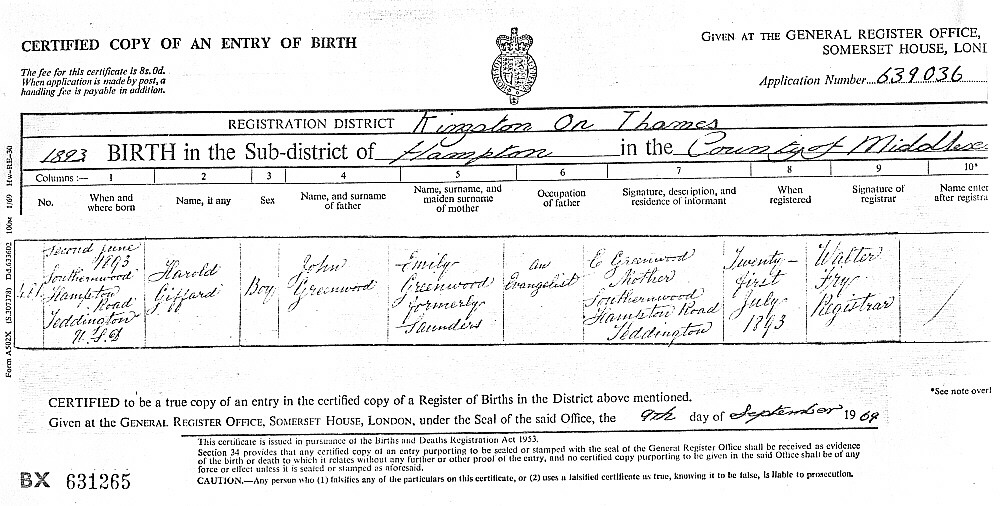 CERTIFIED COPY OF AN ENTRY OF BIRTH
GIVEN AT THE GENERAL REGISTER OFFICE,
SOMERSET HOUSE, LOND
The fee for this certificate is 8s. 0d.
When application is made by post, a
handling fee is payable in addition.
Application Number 639036
REGISTRATION DISTRICT Kingston On Thames
1893 BIRTH in the Sub-district of Hampton in the County of Middlesex
Columns :— 1 2 3 4 5 6 7 8 9 10*
No. When and where born Name, if any Sex Name, and surname of father Name, surname, and maiden surname of mother Occupation of father Signature, description, and residence of informant When registered Signature of registrar Name enter after registra
Second June 1893 Southernwood Hampton Road Teddington U.S.D
Harold Giffard
Boy
John Greenwood
Emily Greenwood formerly Saunders
an Evangelist
E Greenwood Mother Southernwood Hampton Road Teddington
Twenty-first July 1893
Walter Fry Registrar
*See note overl
CERTIFIED to be a true copy of an entry in the certified copy of a Register of Births in the District above mentioned.
Given at the GENERAL REGISTER OFFICE, SOMERSET HOUSE, LONDON, under the Seal of the said Office, the 9th day of September 1969
This certificate is issued in pursuance of the Births and Deaths Registration Act 1953.
Section 34 provides that any certified copy of an entry purporting to be sealed or stamped with the seal of the General Register Office shall be received as evidence
of the birth or death to which it relates without any further or other proof of the entry, and no certified copy purporting to be given in the said Office shall be of any
force or effect unless it is sealed or stamped as aforesaid.
CAUTION.—Any person who (1) falsifies any of the particulars on this certificate, or (2) uses a falsified certificate as true, knowing it to be false, is liable to prosecution.
BX 631265
Form A502X